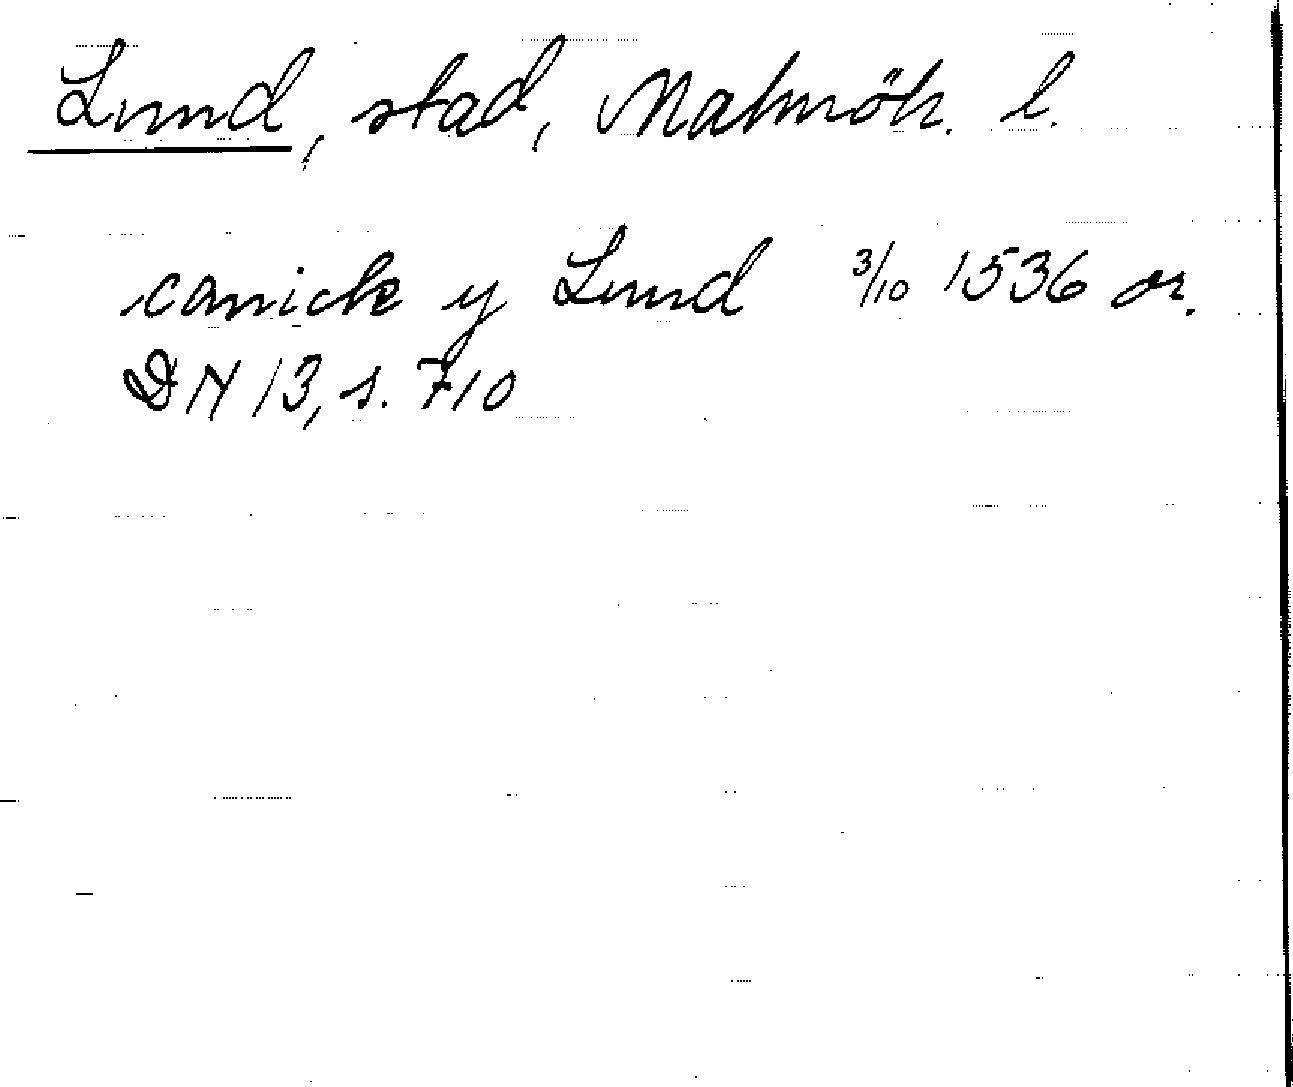 Lund, stad, Malmöh. l.
canick y Lund 3/10 1536 or.
DN 13, s. 710